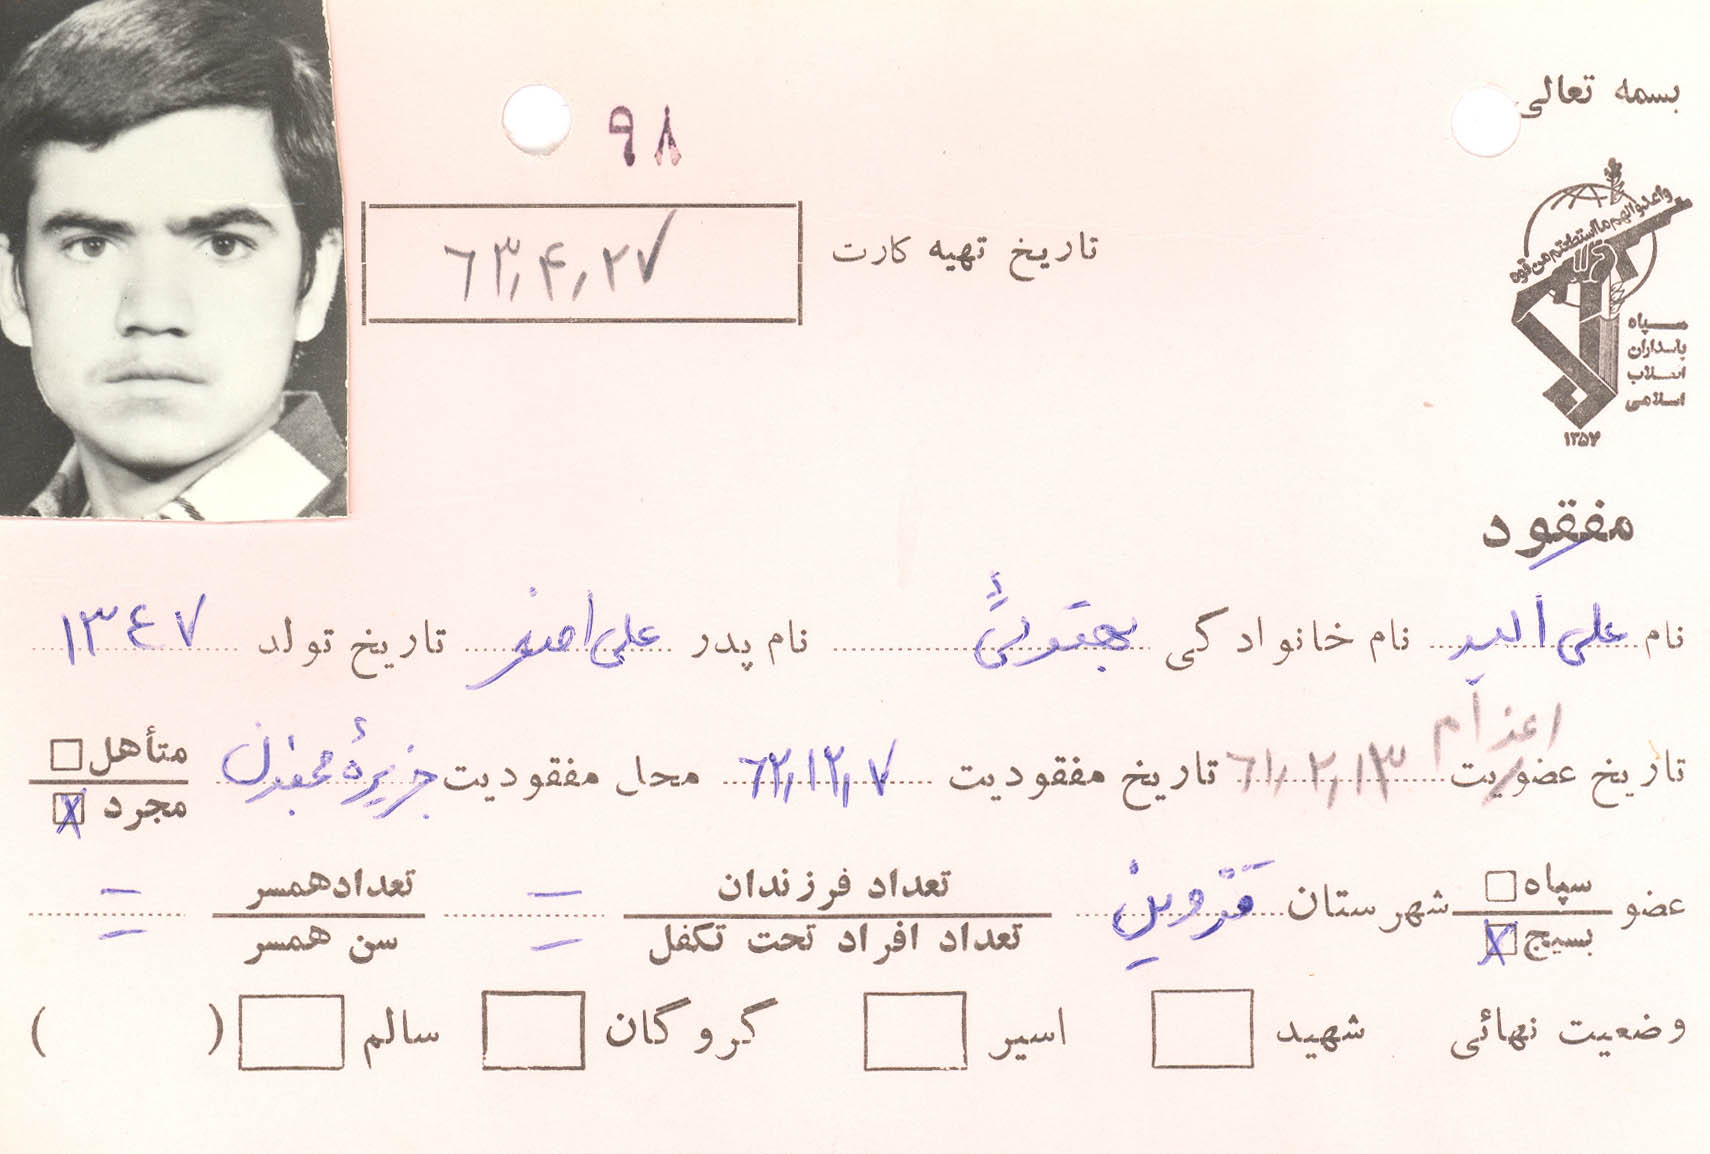 بسمه تعالی
۹۸
تاریخ تهیه کارت ۶۳٫۴٫۲۷
واعدوا لهم ما استطعتم من قوه
سپاه
پاسداران
انقلاب
اسلامی
۱۳۵۷
مفقود
نام علی نام خانوادگی نام پدر علی اصغر تاریخ تولد ۱۳۴۷
اعزام
تاریخ عضویت ۶۱٫۲٫۱۳ تاریخ مفقودیت ۶۲٫۱۲٫۷ محل مفقودیت جزیرهٔ مجنون
متأهل
مجرد X
عضو سپاه شهرستان قزوین تعداد فرزندان — تعداد همسر —
بسیج X تعداد افراد تحت تکفل — سن همسر —
وضعیت نهائی شهید اسیر گروگان سالم ( )